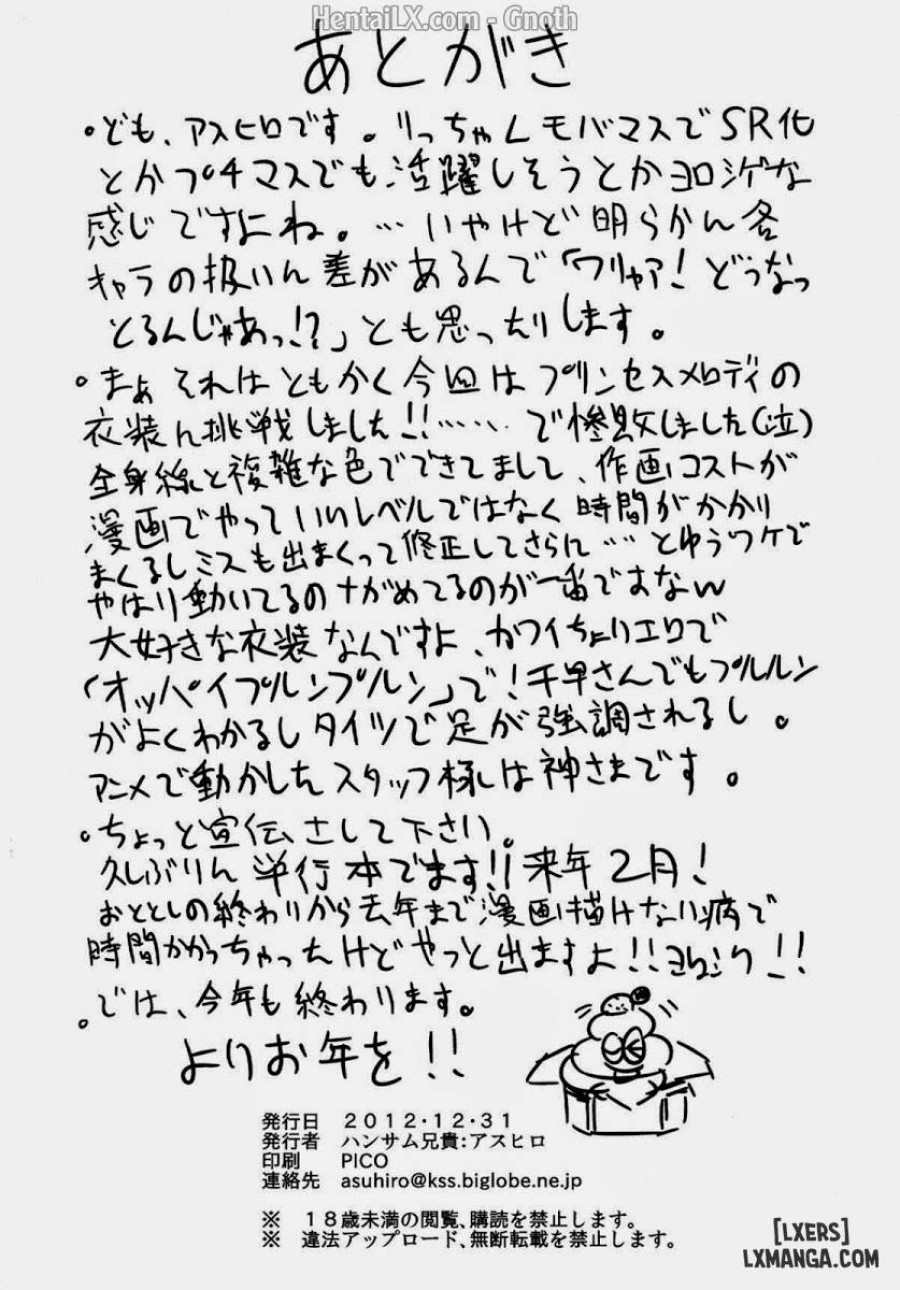 HentaiLX.com - Gnoth
あとがき
・ども、アスヒロです。りっちゃんモバマスでSR化
とかプチマスでも活躍しそうとかヨロシゲな
感じですよね。…いやけど明らかん各
キャラの扱いん差があるんで「ワリャア!どうなっ
とるんじゃあっ!?」とも思ったりします。
・まぁそれはともかく今回はプリンセスメロディの
衣装ん挑戦しました!!……で惨敗しました(泣)
全身線と複雑な色でできてまして、作画コストが
漫画でやっていいレベルではなく時間がかかり
まくるしミスも出まくって修正してさらに…とゆうワケで
やはり動いてるのナガめてるのが一番ですなん
大好きな衣装なんですよ、カワイちょりエロで
「オッパイプルンプルン」で!千早さんでもプルルン
がよくわかるしタイツで足が強調されるし。
アニメで動かしたスタッフ様は神さまです。
・ちょっと宣伝さして下さい。
久しぶりん単行本でます!!来年2月!
おととしの終わりから去年まで漫画描けない病で
時間かかっちゃったけどやっと出ますよ!!ヨロシク!!
・では、今年も終わります。
よりお年を!!
発行日 2012・12・31
発行者 ハンサム兄貴:アスヒロ
印刷 PICO
連絡先 asuhiro@kss.biglobe.ne.jp
※ 18歳未満の閲覧、購読を禁止します。
※ 違法アップロード、無断転載を禁止します。
[LXERS]
LXMANGA.COM